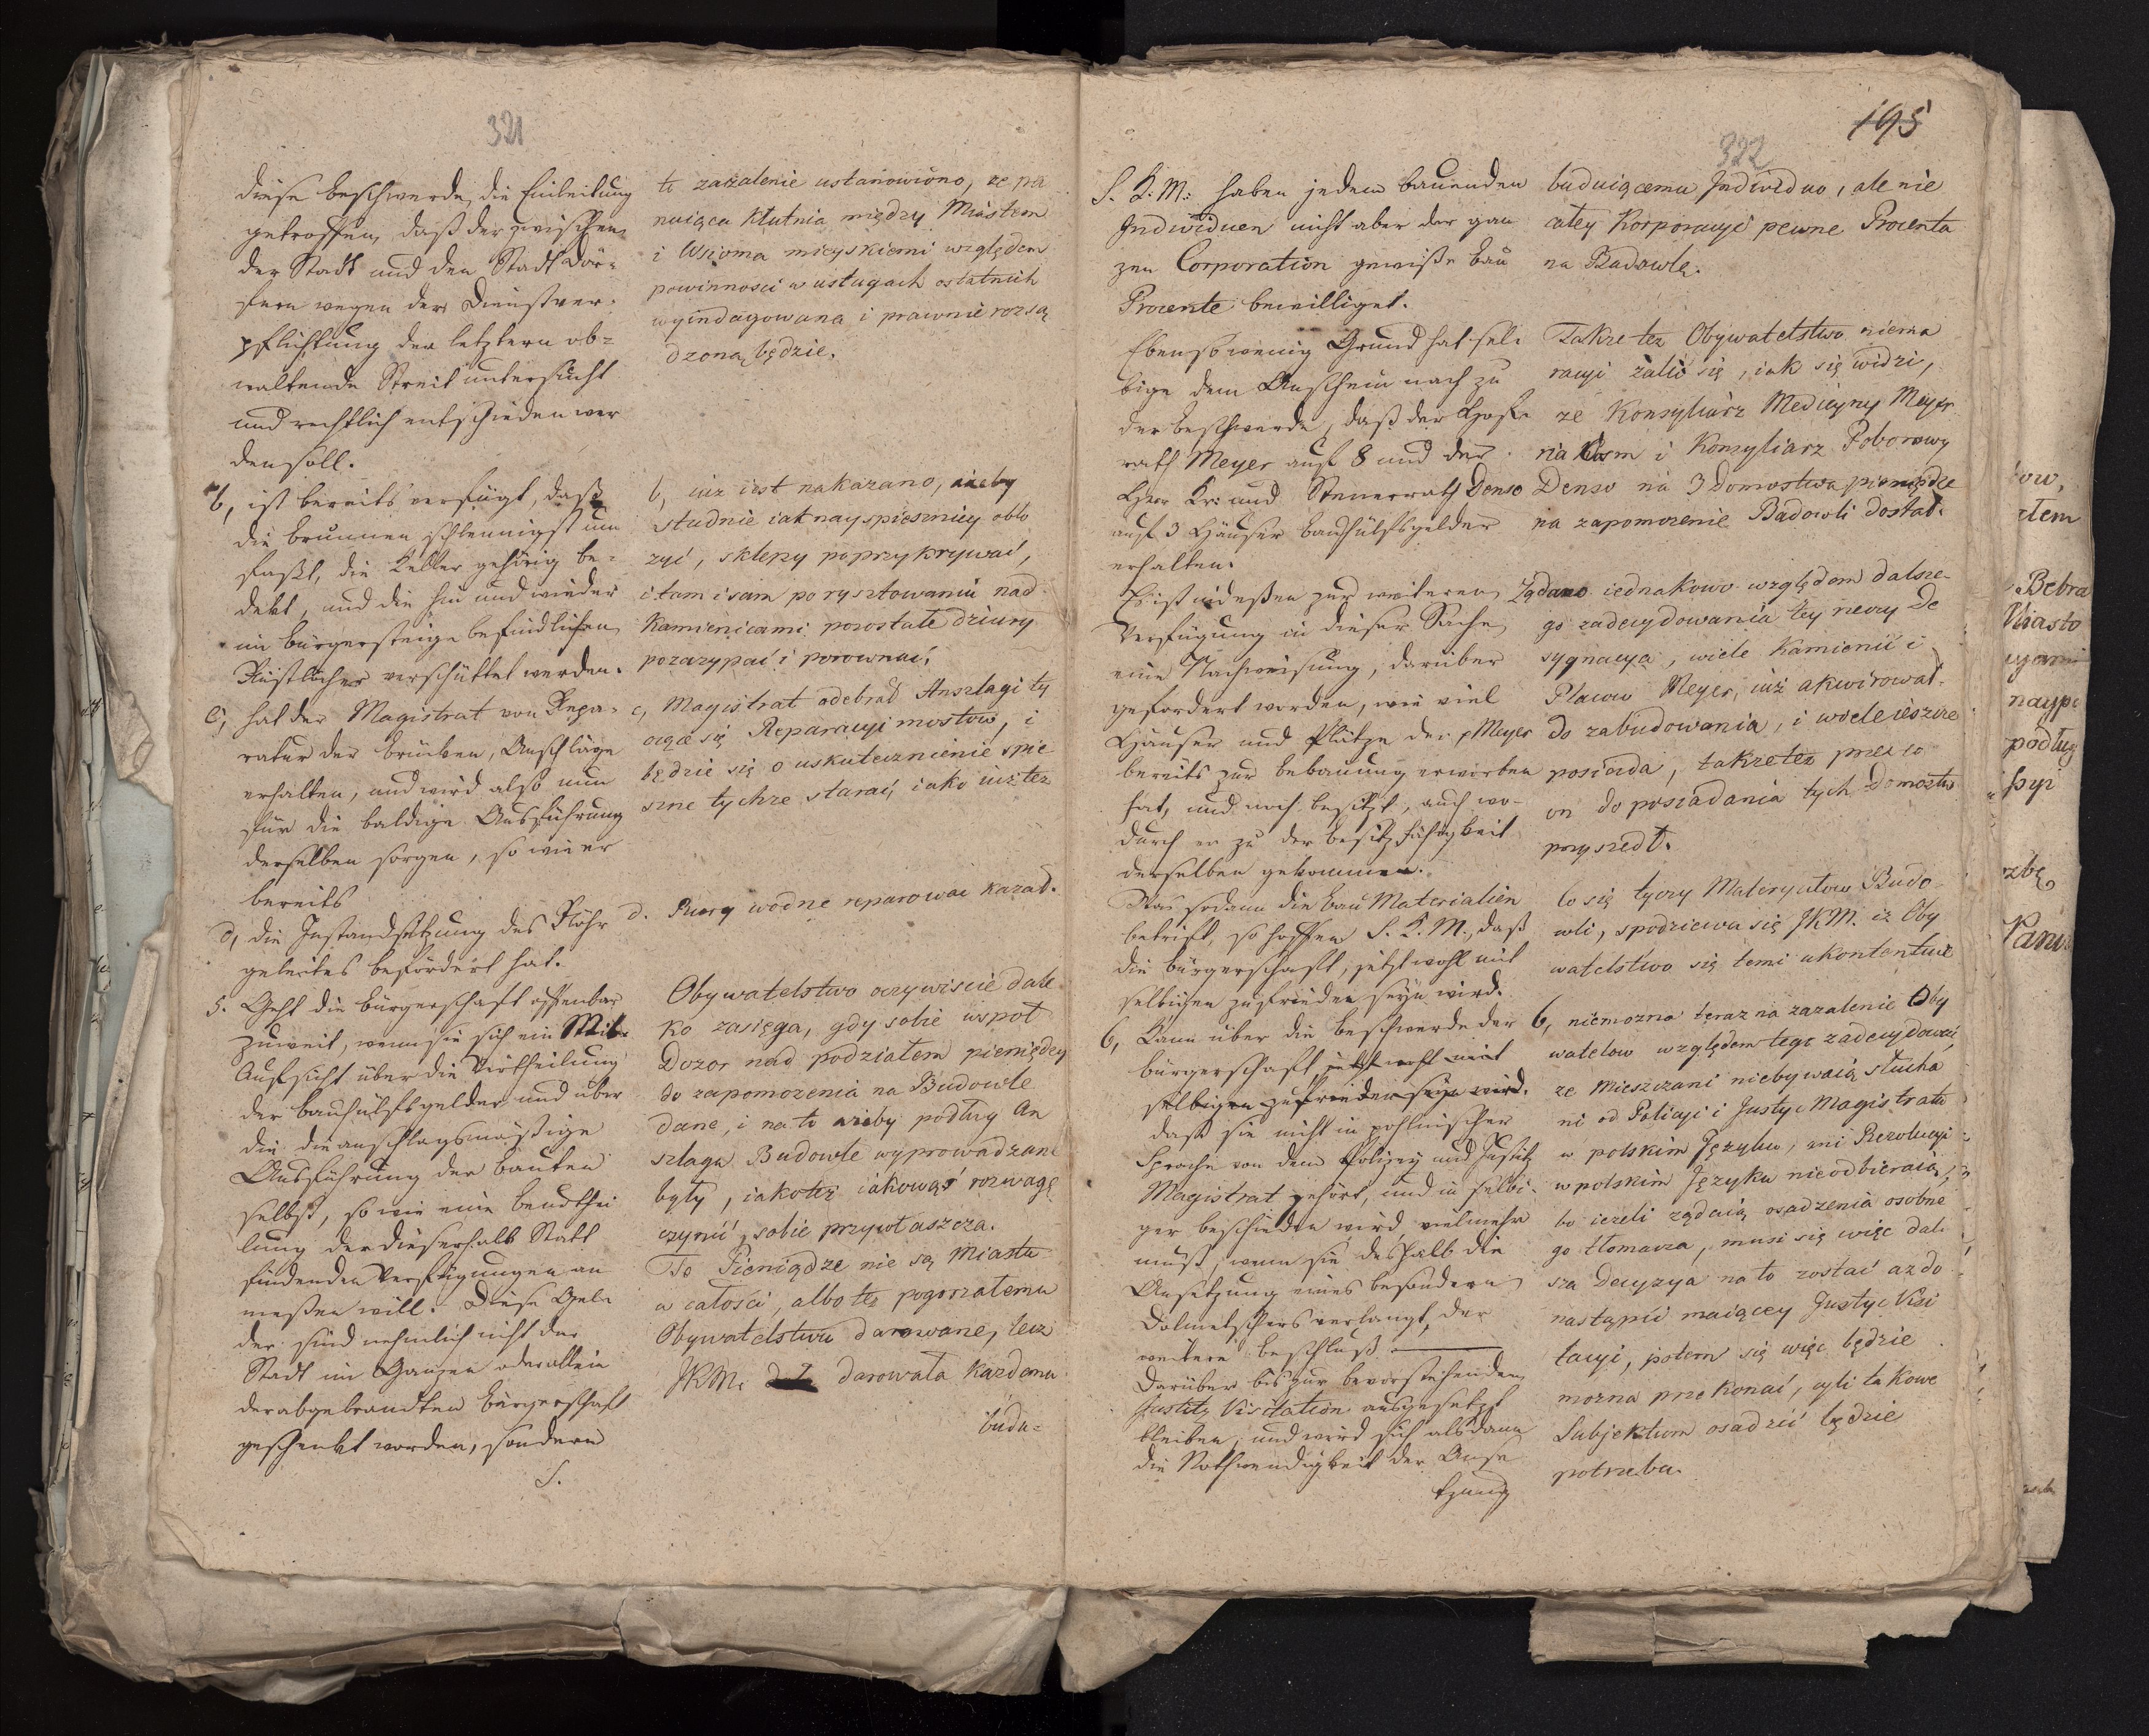 321
diese Beschwerde, die Einleitung
getroffen, daß der zwischen
der Stadt und den Stadt Dör-
fern wegen der Dienstver-
pflichtung der letztern ob-
waltende Streit untersucht
und rechtlich entschieden wer
den soll.
b, ist bereits verfügt, daß
die Brunnen schleunigst um
faßt, die Keller gehörig be-
dekt, und die hin und wieder
im Bürgersteige befindlichen
Rüstlöcher verschüttet werden.
c, hat der Magistrat von Repa-
ratur der Brücken, Anschläge
erhalten, und wird also nun
für die baldige Ausführung
derselben sorgen, so wie er
bereits
d, die Instandsetzung des Röhr
geleites befördert hat.
5. Geht die Bürgerschaft offenbar
zuweit, wenn sie sich ein Mit-
Aufsicht über die Vertheilung
der Bauhülfsgelder und über
die anschlagsmäßige
Ausführung der Bauten
selbst, so wie eine Beurthei
lung der dieserhalb Statt
findenden Verfügungen an
maßen will. Diese Gel-
der sind nehmlich nicht der
Stadt im Ganzen oder allein
der abgebrandten Bürgerschaft
geschenkt worden, sondern
S.
to zażalenie ustanowiono, ze pa
nuiąca kłutnia między Miastem
i Wsioma mieyskiemi względem
powinności w usługach ostatnich
wyindagowana i prawnie rozsą
dzona będzie.
b, iuz iest nakazano, azeby
studnie iak nayspieszniey oblo
zyć, sklepy poprzykrywać,
i tam i sam po rysztowaniu nad
Kamienicami pozostałe dziury
pozazypać i porownać,
c, Magistrat odebrał Anszlagi ty
czące się Reparacyi mostow, i
będzie się o uskutecznienie spie
szne tychze starać, iako iuz tez
d. Rury wodne reparowac kazał.
Obywatelstwo oczywiscie dale
ko zasięga, gdy sobie wspoł
Dozor nad podziałem pieniędzy
do zapomozenia na Budowle
dane, i na to azeby podług An
szlagu Budowle wyprowadzane
były, iakotez iakowąś rozwagę
czynić, sobie przywłaszcza.
Te Pieniądze nie są Miastu
w całości, albo tez pogorzałemu
Obywatelstwu darowane, lecz
JKM. darowała kazdemu
budu-
195
322
S. K. M. haben jedem bauenden
Individuen nicht aber der gan
zen Corporation gewiße Bau
Procente bewilliget.
Ebensowenig Grund hat sel-
bige dem Anschein nach zu
der Beschwerde, daß der Hof-
rath Meyer auf 8 und der
Herr Kr: und Steuerrath Denso
auf 3 Häuser Bauhülfsgelder
erhalten.
Es ist indeßen zur weiteren
Verfügung in dieser Sache
eine Nachweisung, darüber
gefordert worden, wie viel
Häuser und Plätze der p Meyer
bereits zur Bebauung erworben
hat, und noch besitzt, auch wo-
durch er zu der Besitzfähigkeit
derselben gekommen.
Was sodann die Bau Materialien
betrift, so hoffen S. K. M., daß
die Bürgerschaft, jetzt wohl mit
selbigen zufrieden seyn wird.
6, Kann über die Beschwerde der
Bürgerschaft, jetzt wohl mit
selbigen zufrieden seyn wird.
daß sie nicht in pohlnischer
Sprache von dem Polizey und Justitz
Magistrat gehört, und in selbi-
ger beschieden wird, vielmehr
muß, wenn sie deshalb die
Ansetzung eines besondern
Dolmetschers verlangt, der
weitere Beschluß
darüber bis zur bevorstehenden
Justitz Visitation ausgesetzt
bleiben, und wird sich alsdann
die Nothwendigkeit der Anse
tzung
buduiącemu Individuo, ale nie
całey Korporacyi pewne Procenta
na Budowlę.
Takze tez Obywatelstwo niema
racyi zalić się, iak się widzi,
ze Konsyliarz Medicyny Meyer
na osm i Konsyliarz Poborowy
Denso na 3 Domostwa pieniądze
na zapomozenie Budowli dostał.
Ządano iednakowo względem dalsze-
go zadecydowania tey rzeczy De
sygnacya, wiele Kamienic i
Placow Meyer, iuz akwirował
do zabudowania, i wiele ieszcze
posiada, takze tez przez co
on do posiadania tych Domostw
przyszedł.
Co się tyczy Materyałow Budo
wli, spodziewa się JKM. iz Oby
watelstwo się temi ukontentuie
6, niemozna teraz na zazalenie Oby
watelow względem tego zadecydować,
ze Mieszczani niebywaią słucha
ni od Policyi i Justyc Magistratu
w polskim Języku, ani Rezolucyi
w polskim Języku nieodbieraią,
bo iezeli ządaią osadzenia osobne
go tłomacza, musi się więc dal-
sza Decyzya na to zostać az do
nastąpić maiącey Justyc Visi
tacyi, potem się więc będzie
mozna przekonać, czyli takowe
Subjektum osadzić będzie
potrzeba.
ow,
Bebra
Miasto
naype
podług
Panu